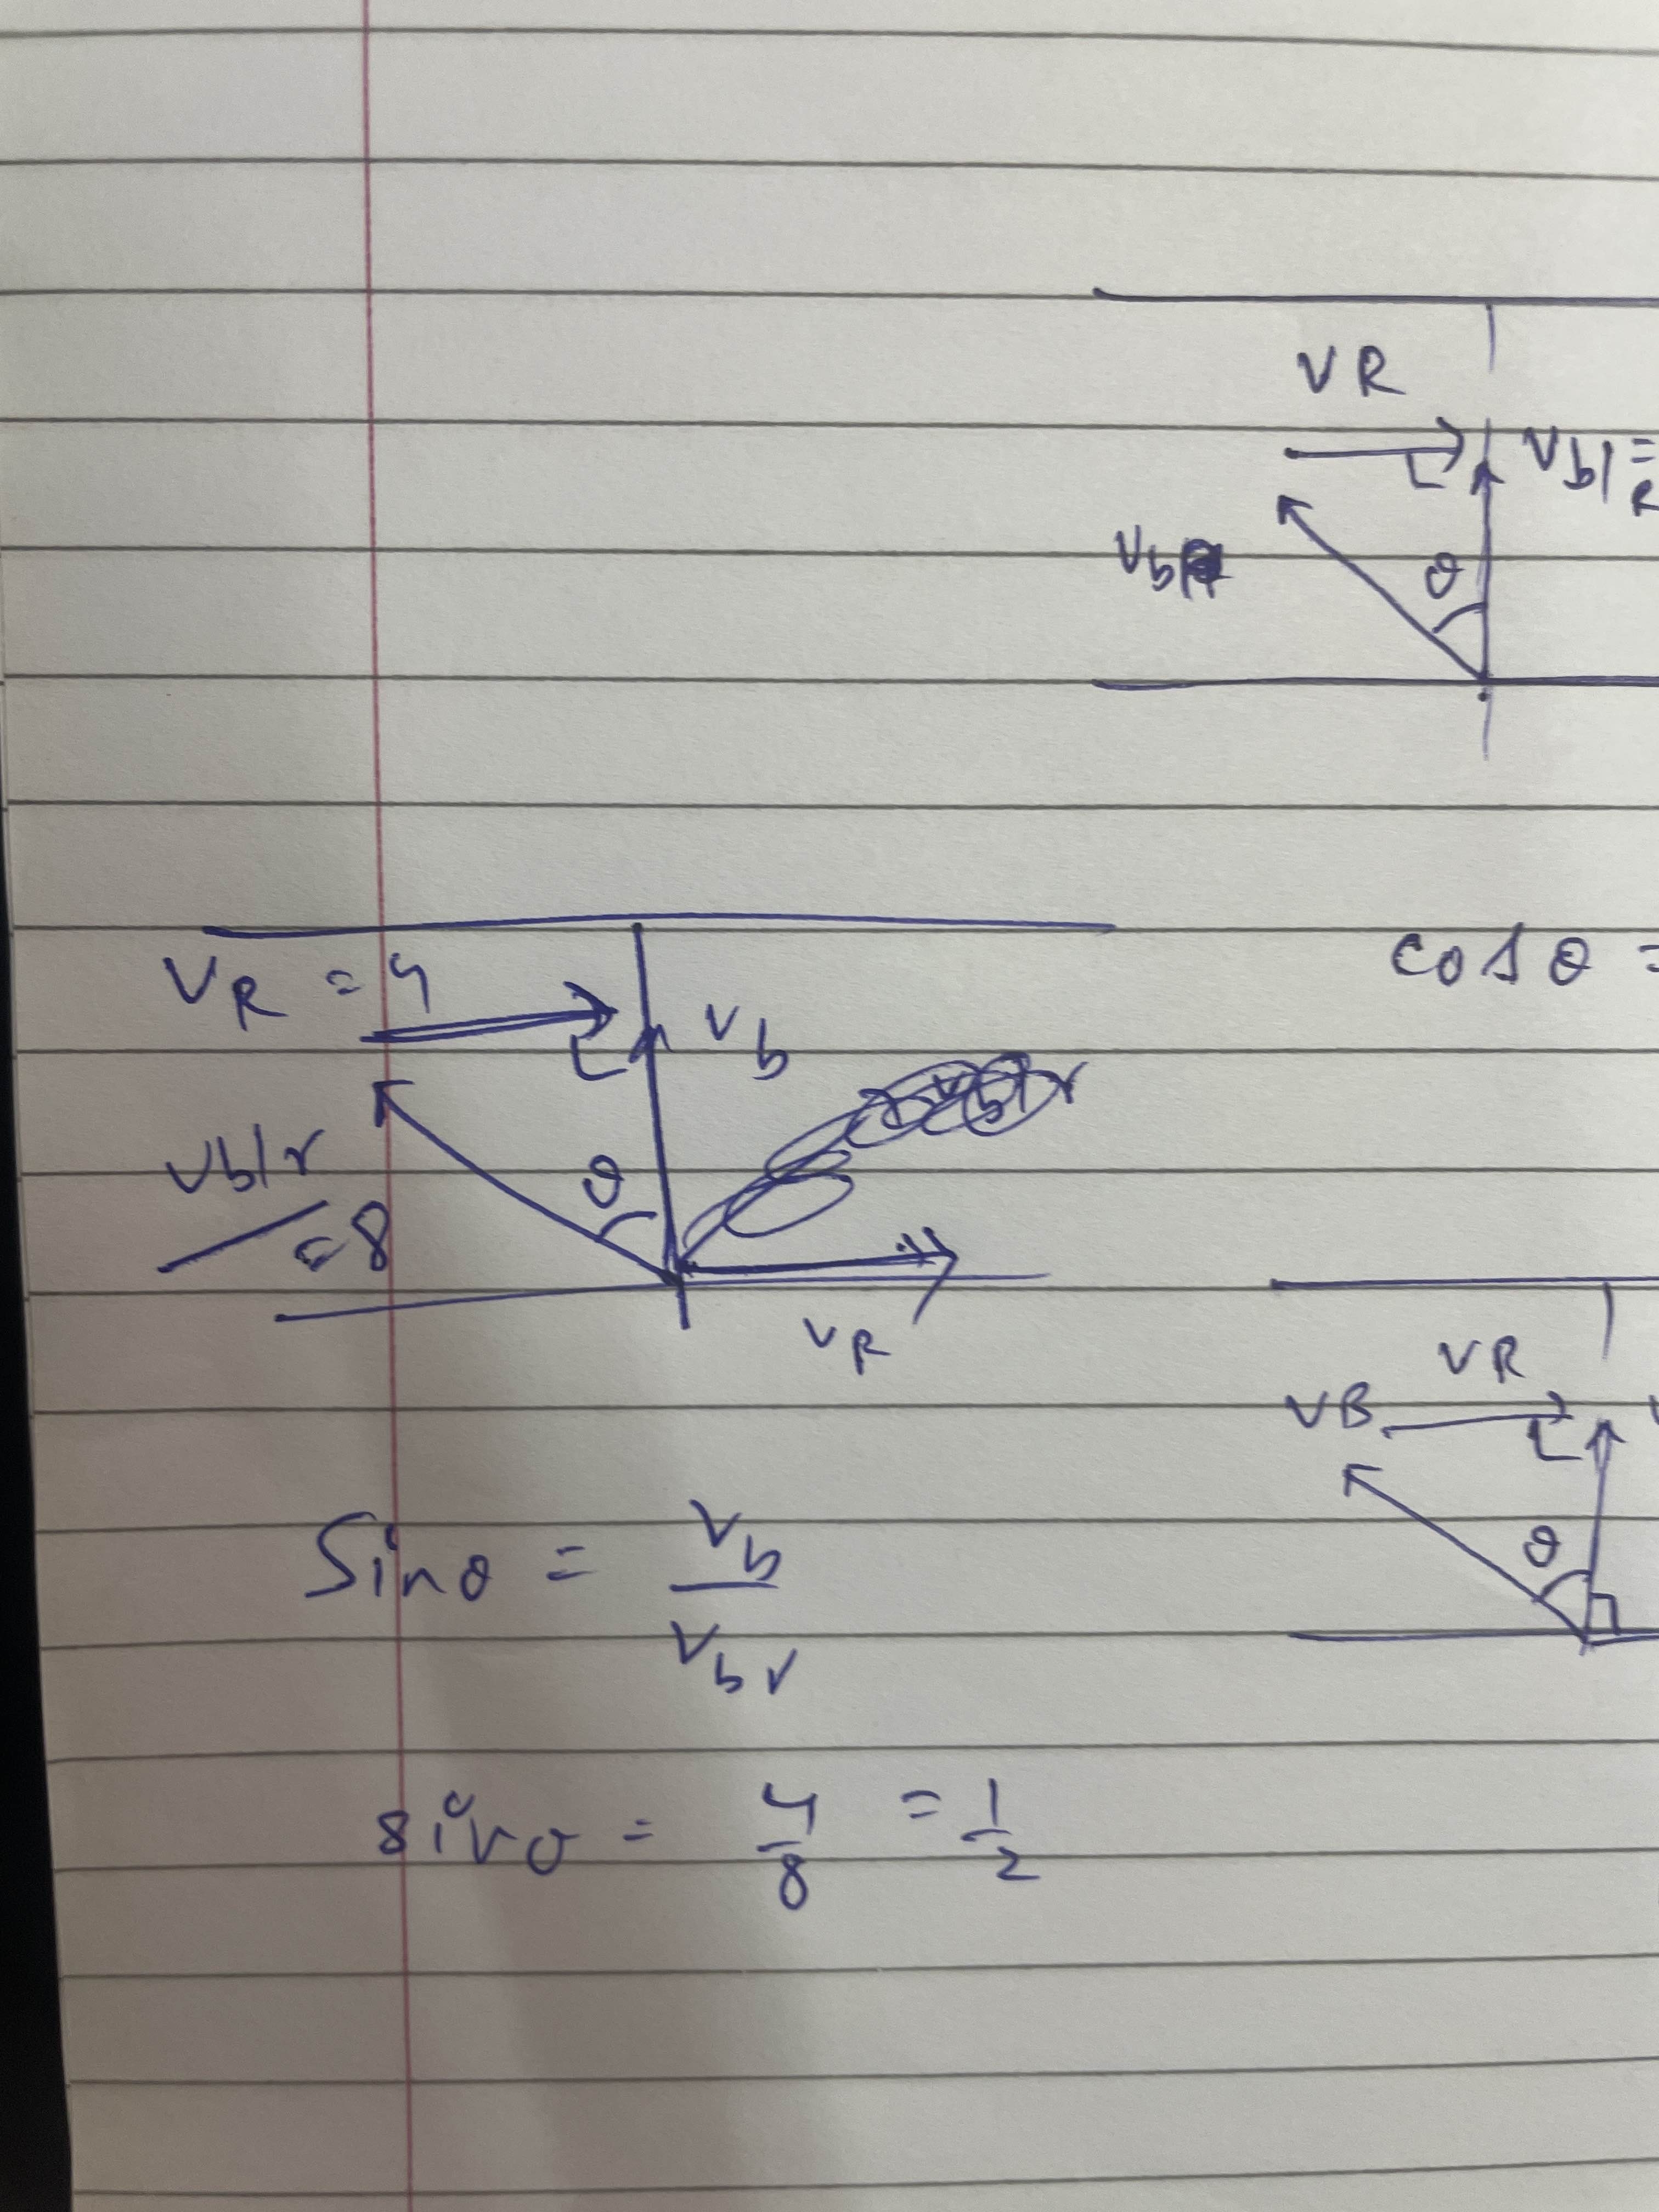 VR
Vb/R =
Vb
θ
VR = 4
Vb
Vb/r
Vb/r
= 8
θ
VR
cos θ =
VR
VB
θ
Sinθ = Vb
Vbr
sinθ = 4 = 1
8 2